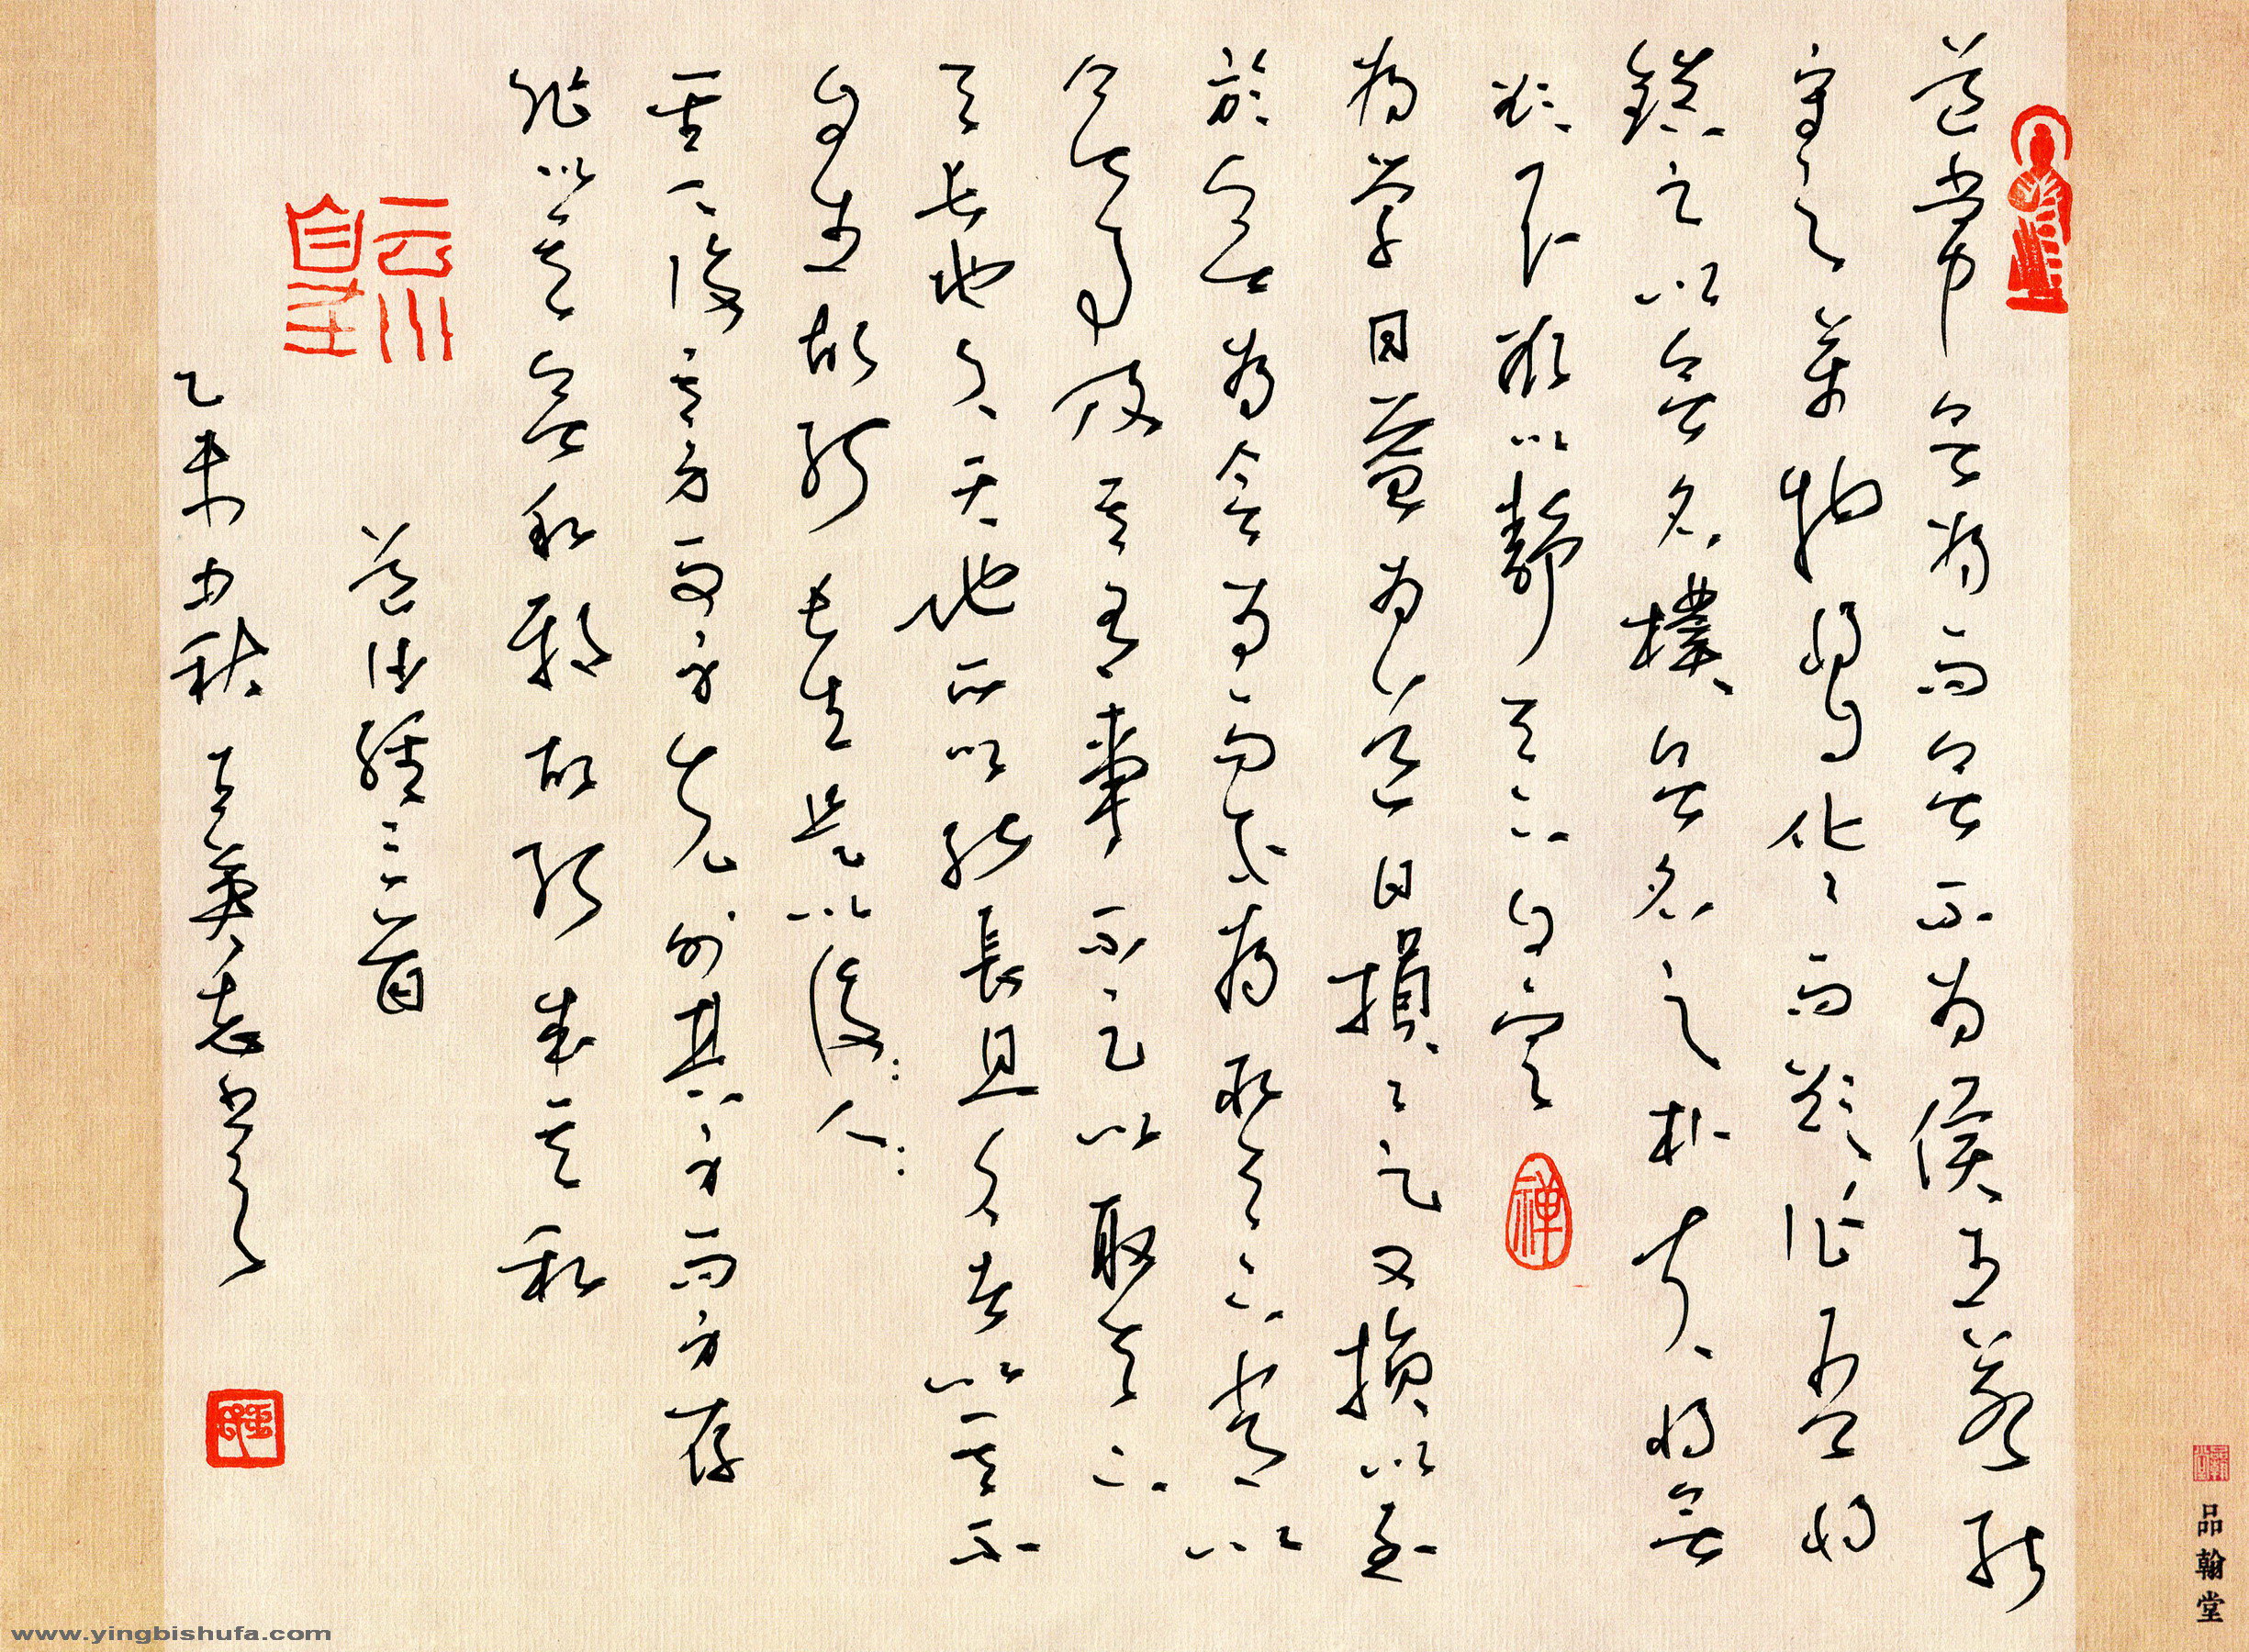 道常無為而無不為侯王若能
守之萬物將自化々而欲作吾將
鎮之以無名樸無名之朴夫將無
欲不欲以靜天下自定
禅
為學日益為道日損々之又損以至
於無為無為而不為取天下常以
無事及其有事不足以取天下
天長地久天地所以能長且久者以其不
自生故能長生是以後人
聖人後其身而身先外其身而身存
非以其無私耶故能成其私
道德經三首
乙未中秋 英志书
品翰堂
www.yingbishufa.com